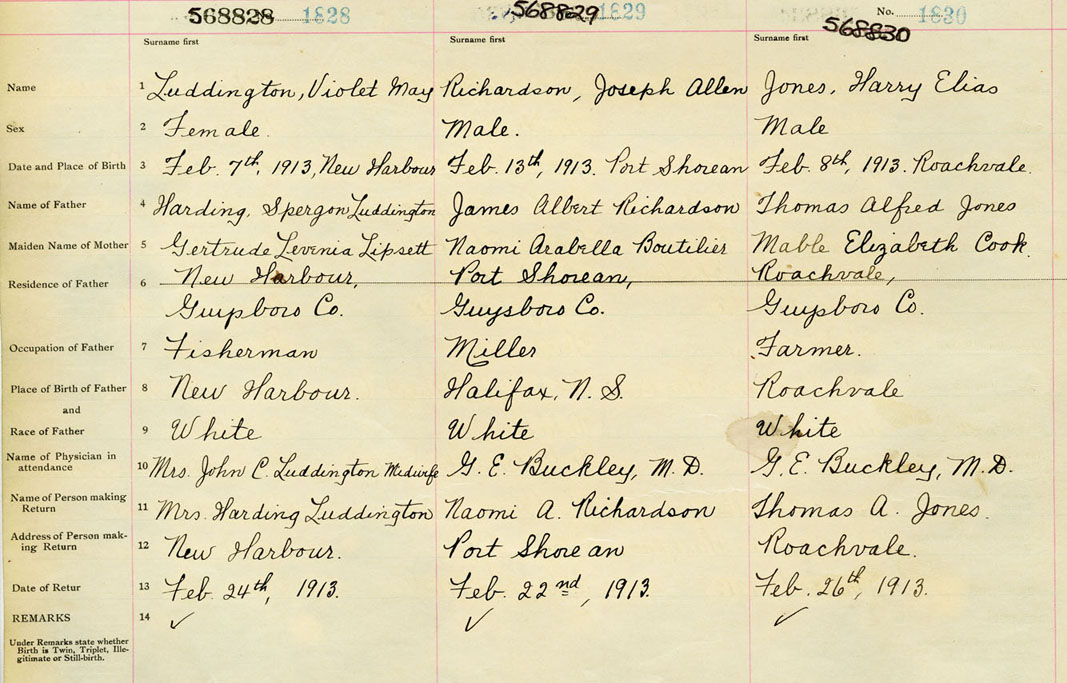 568828 1828 568829 1829 No. 1830
568830
Surname first Surname first Surname first
Name 1 Luddington, Violet May Richardson, Joseph Allen Jones, Harry Elias
Sex 2 Female. Male. Male
Date and Place of Birth 3 Feb. 7th, 1913, New Harbour Feb. 13th, 1913. Port Shorean Feb. 8th, 1913. Roachvale.
Name of Father 4 Harding, Spergon Luddington James Albert Richardson Thomas Alfred Jones
Maiden Name of Mother 5 Gertrude Levenia Lipsett Naomi Arabella Boutilier Mable Elizabeth Cook.
Residence of Father 6 New Harbour, Port Shorean, Roachvale,
Guysboro Co. Guysboro Co. Guysboro Co.
Occupation of Father 7 Fisherman Miller Farmer.
Place of Birth of Father 8 New Harbour. Halifax, N. S. Roachvale
and
Race of Father 9 White White White
Name of Physician in
attendance 10 Mrs. John C. Luddington Midwife G. E. Buckley, M. D. G. E. Buckley, M. D.
Name of Person making
Return 11 Mrs. Harding Luddington Naomi A. Richardson Thomas A. Jones.
Address of Person mak-
ing Return 12 New Harbour. Port Shorean Roachvale.
Date of Retur 13 Feb. 24th, 1913. Feb. 22nd, 1913. Feb. 26th, 1913.
REMARKS 14 ✓ ✓ ✓
Under Remarks state whether
Birth is Twin, Triplet, Ille-
gitimate or Still-birth.